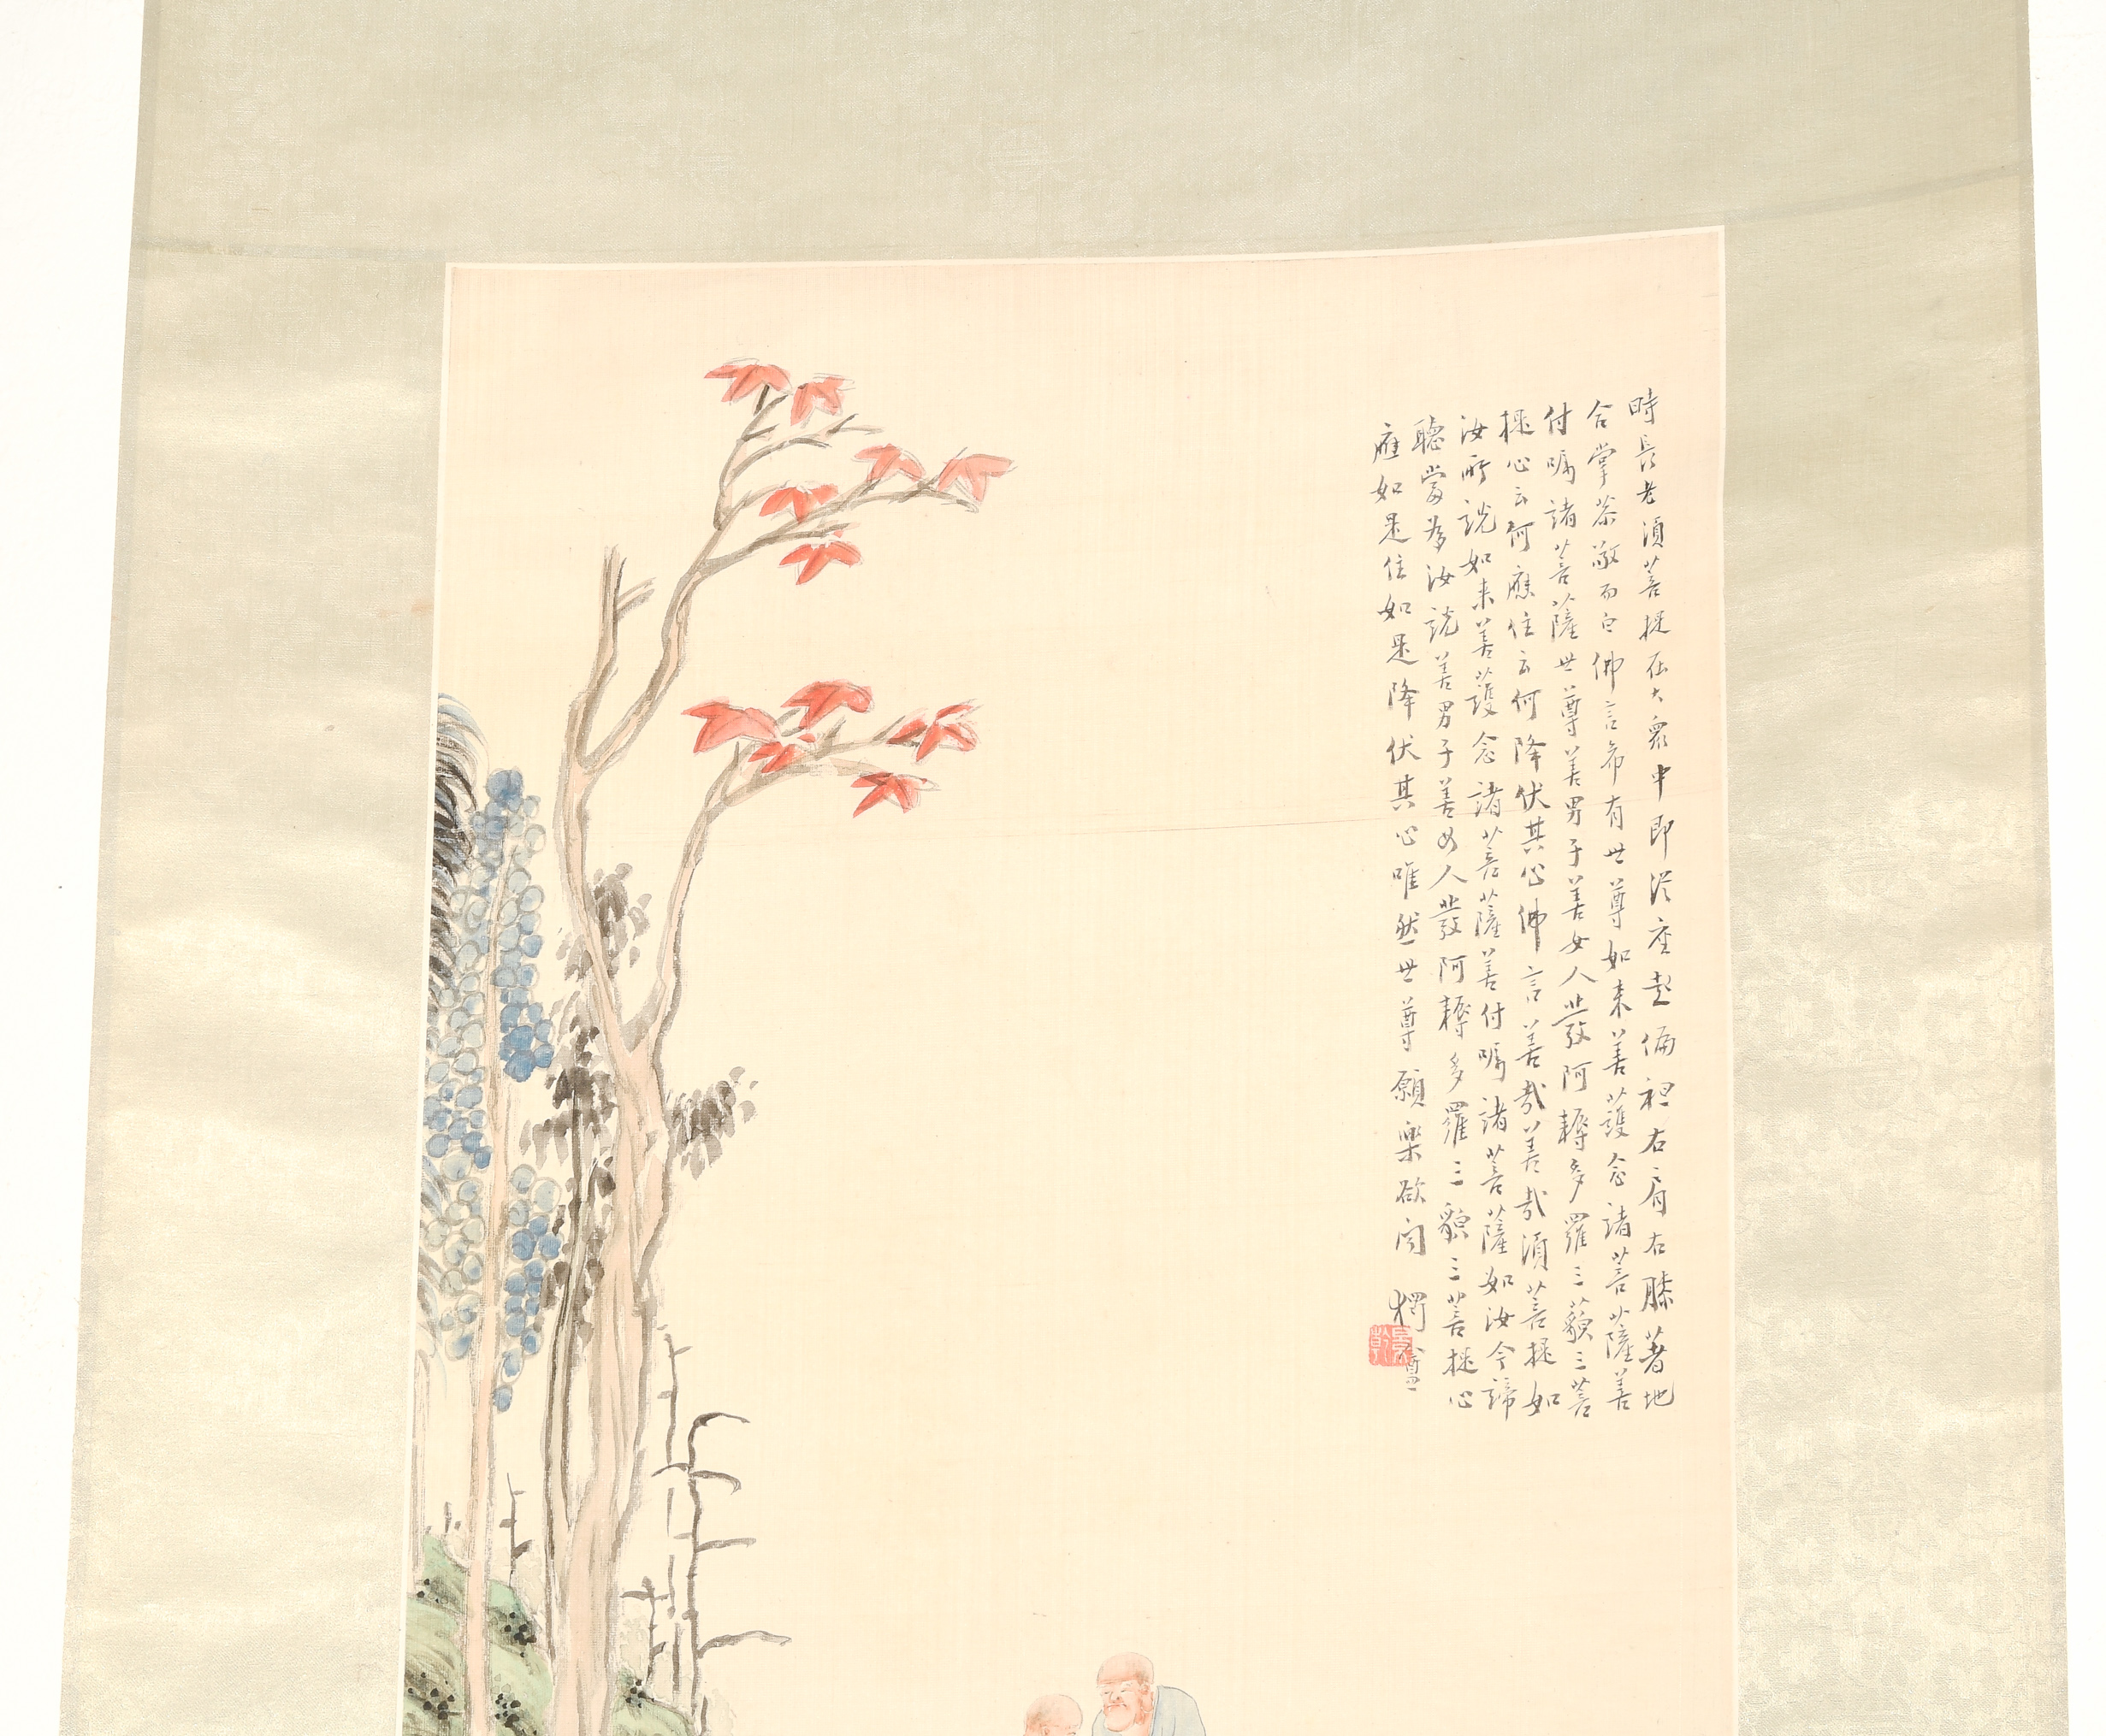 時長老須菩提在大眾中即從座起偏袒右肩右膝著地
合掌恭敬而白佛言希有世尊如来善護念諸菩薩善
付嘱諸菩薩世尊善男子善女人發阿耨多羅三藐三菩
提心云何應住云何降伏其心佛言善哉善哉須菩提如
汝所說如来善護念諸菩薩善付嘱諸菩薩如汝今諦
聽當為汝說善男子善女人發阿耨多羅三藐三菩提心
應如是住如是降伏其心唯然世尊願樂欲聞